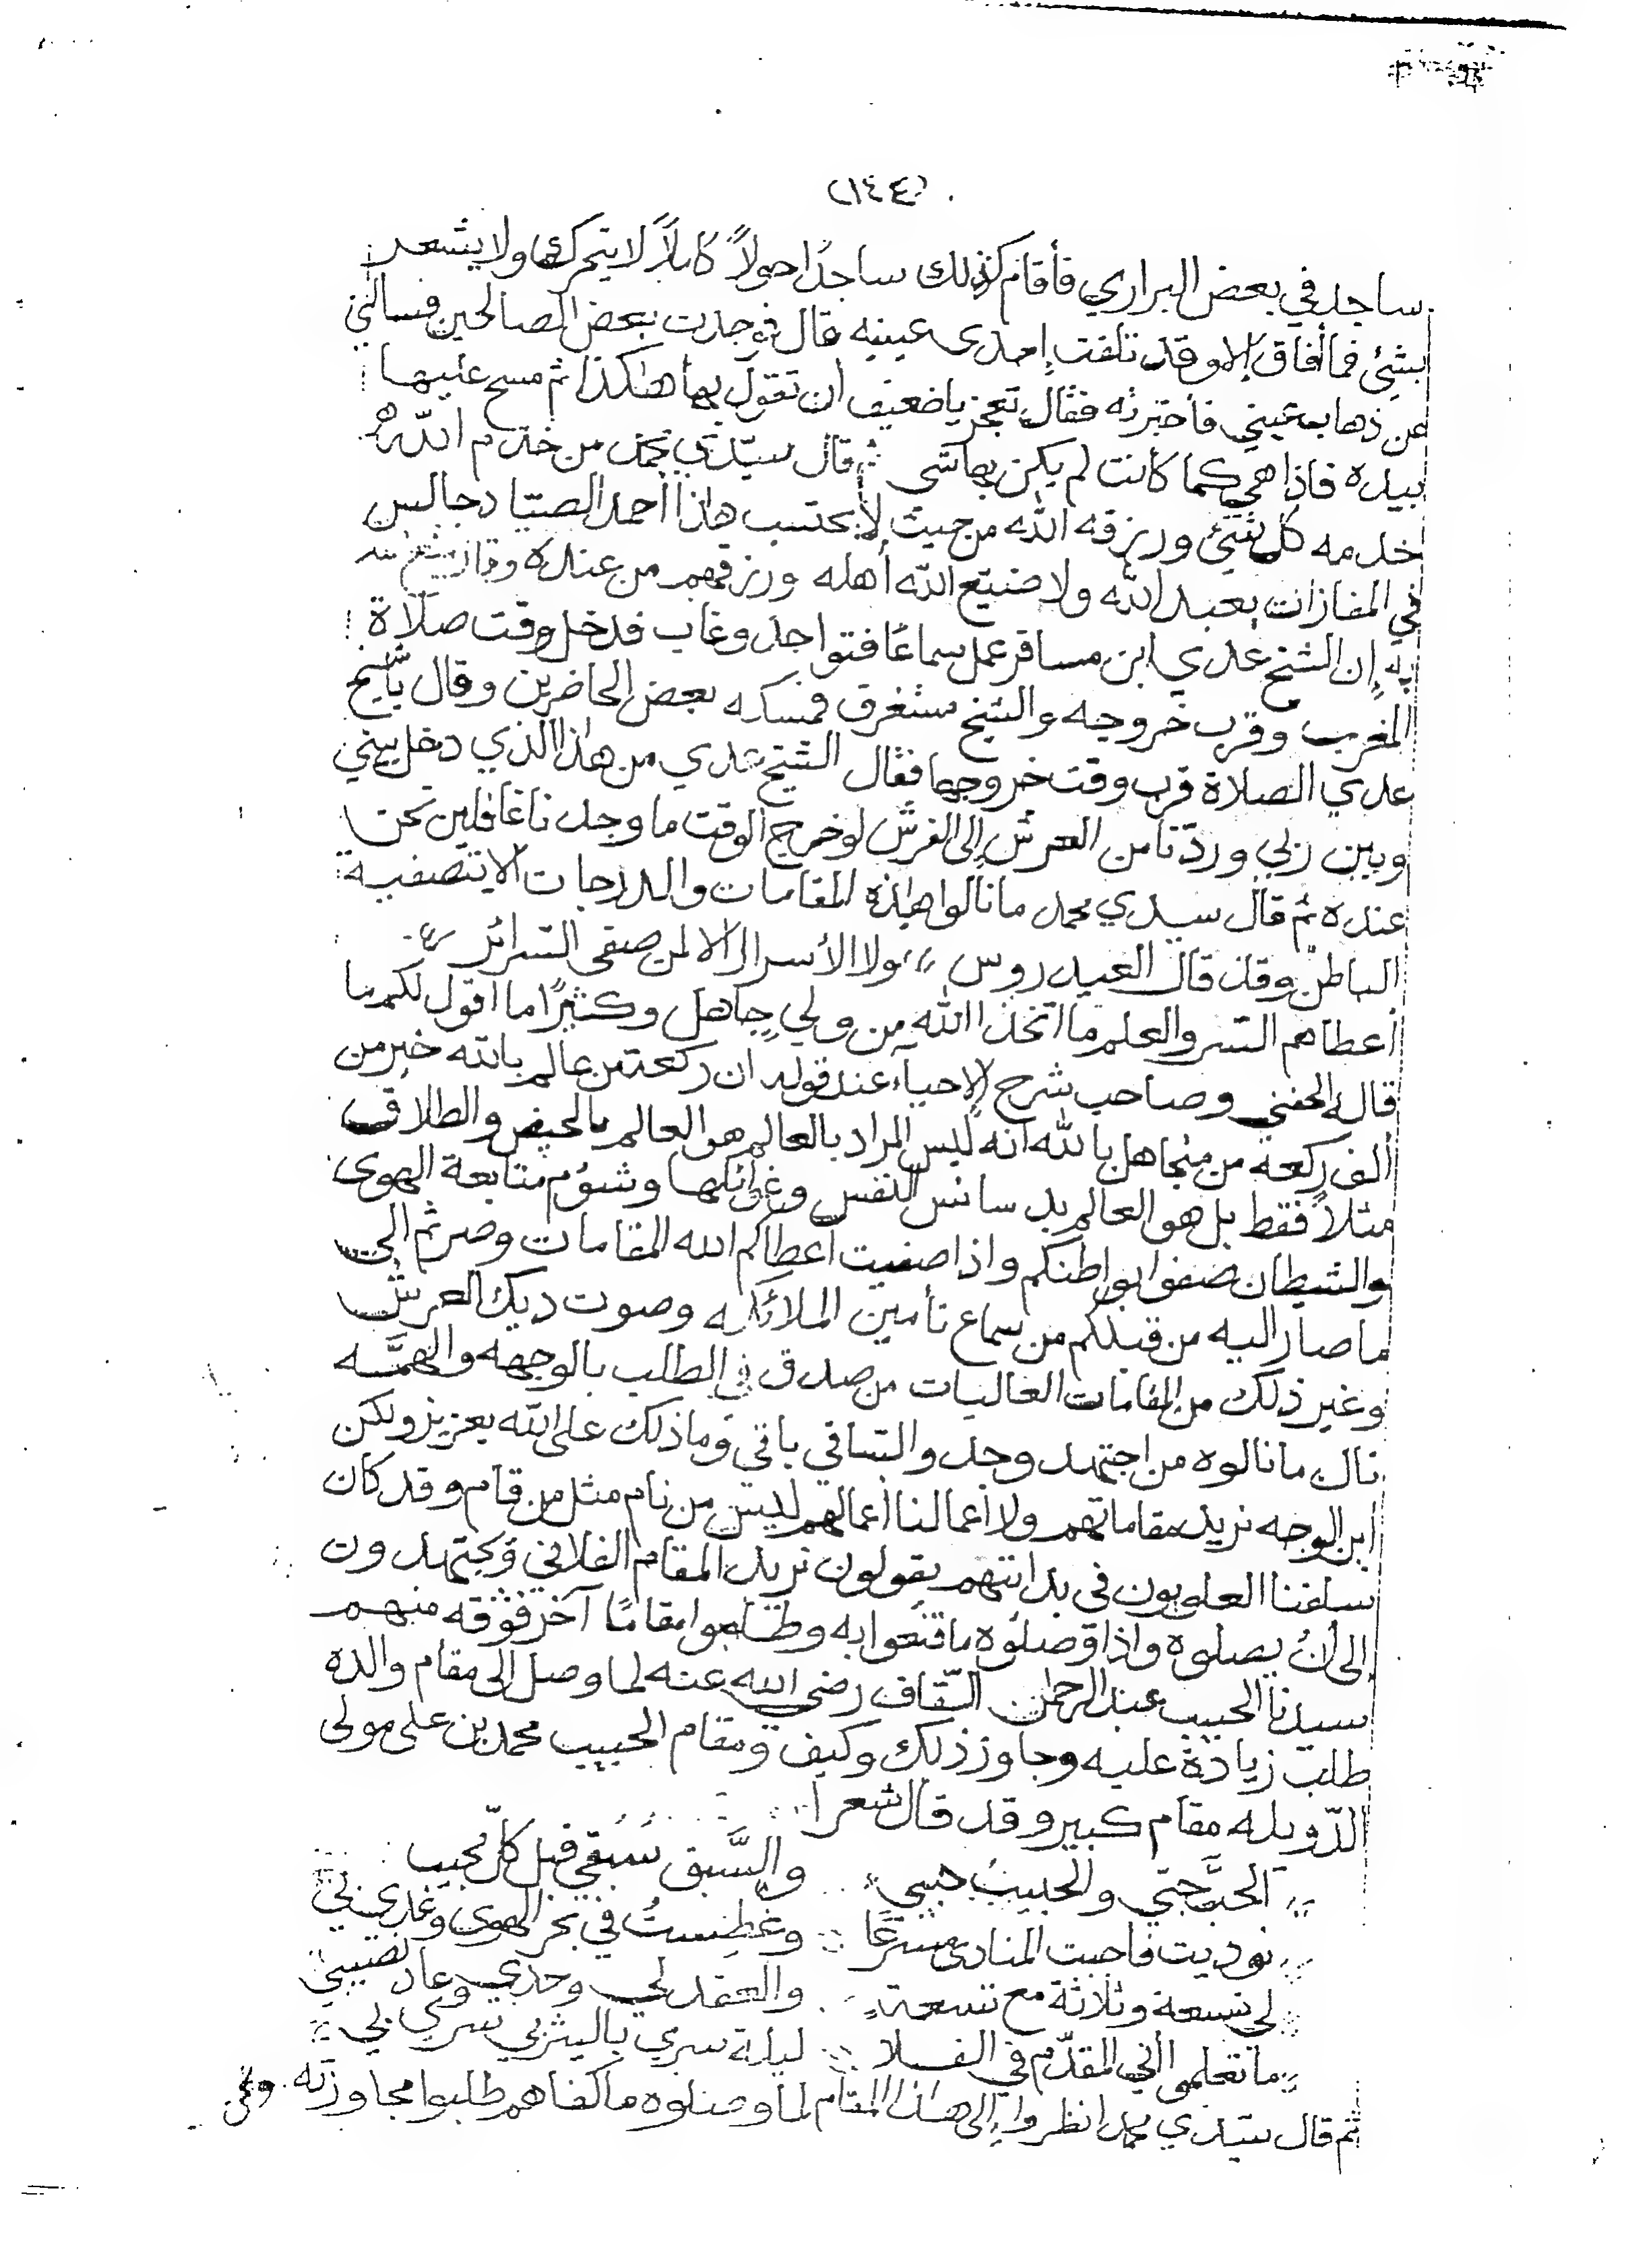 (١٤٤)
ساجد في بعض البراري فأقام كذلك ساجدًا حولاً كاملاً لا يتحرك ولا يشعر
بشئ فما أفاق إلا وقد تلفت إحدى عينيه قال فوجدت بعض الصالحين فسألني
عن ذهاب عيني فأخبرته فقال تعجز يا ضعيف ان تقول بها هاكذا ثم مسح عليها
بيده فاذا هي كما كانت لم يكن بها شى ثم قال سيدي محمد من خدم الله
خدمه كل شئ ورزقه الله من حيث لا يحتسب هاذا أحمد الصياد جالس
في المفازات يعبد الله ولا ضيع الله أهله ورزقهم من عنده
إن الشيخ عدي ابن مسافر عمل سماعًا فتواجد وغاب فدخل وقت صلاة
المغرب وقرب خروجه والشيخ مستغرق فمسكه بعض الحاضرين وقال يا شيخ
عدي الصلاة قرب وقت خروجها فقال الشيخ عدي من هاذا الذي دخل بيني
وبين ربي وردّنا من العرش إلى الفرش لو خرج الوقت ما وجدنا غافلين نحن
عنده ثم قال سيدي محمد ما نالوا هاذه المقامات والدرجات إلا بتصفية
الباطن وقد قال العيدروس ،، ولا الأسرار إلا لمن صفى السرائر ،،
أعطاهم السر والعلم ما اتخذ الله من ولي جاهل وكثيرًا ما أقول لكم ما
قاله الحفني وصاحب شرح الإحياء عند قوله ان ركعة من عالم بالله خير من
ألف ركعة من جاهل بالله أنه ليس المراد بالعالم هو العالم بالحيض والطلاق
مثلاً فقط بل هو العالم بدسائس النفس وغوائلها وشؤم متابعة الهوى
والشيطان صفوا بواطنكم واذا صفيت أعطاكم الله المقامات وصرتم إلى
ما صار اليه من قبلكم من سماع تأمين الملائكه وصوت ديك العرش
وغير ذلك من المقامات العاليات من صدق في الطلب بالوجهه والهمَّه
نال ما نالوه من اجتهد وجد والساقي باقي وما ذلك على الله بعزيز ولكن
أين الوجه نريد مقاماتهم ولا أعمالنا أعمالهم ليس من نام مثل من قام وقد كان
سلفنا العلويون في بدايتهم يقولون نريد المقام الفلاني ويجتهدون
إلى أن يصلوه واذا وصلوه ما قنعوا به وطلبوا مقامًا آخر فوقه منهم
سيدنا الحبيب عبد الرحمن السّقاف رضي الله عنه لما وصل إلى مقام والده
طلب زيادة عليه وجاوز ذلك وكيف ومقام الحبيب محمد بن على مولى
الدّويله مقام كبير وقد قال شعرا
الحبّ حبّي والحبيبُ حبيبي والسَّبق سَبْقي قبل كلّ مجيب
نوديت فاجبت المنادي مسرعًا وغطستُ في بحر الهوى
لي تسعة وثلاثة مع تسعةٍ والعقد لي وحدي وعاد نصيبي
ما تعلموا أني المقدّم في الفلا ليلة سري باليثربي سري بي
ثم قال سيدي محمد انظروا إلى هاذا المقام لما وصلوه ما كفاهم طلبوا مجاوزته